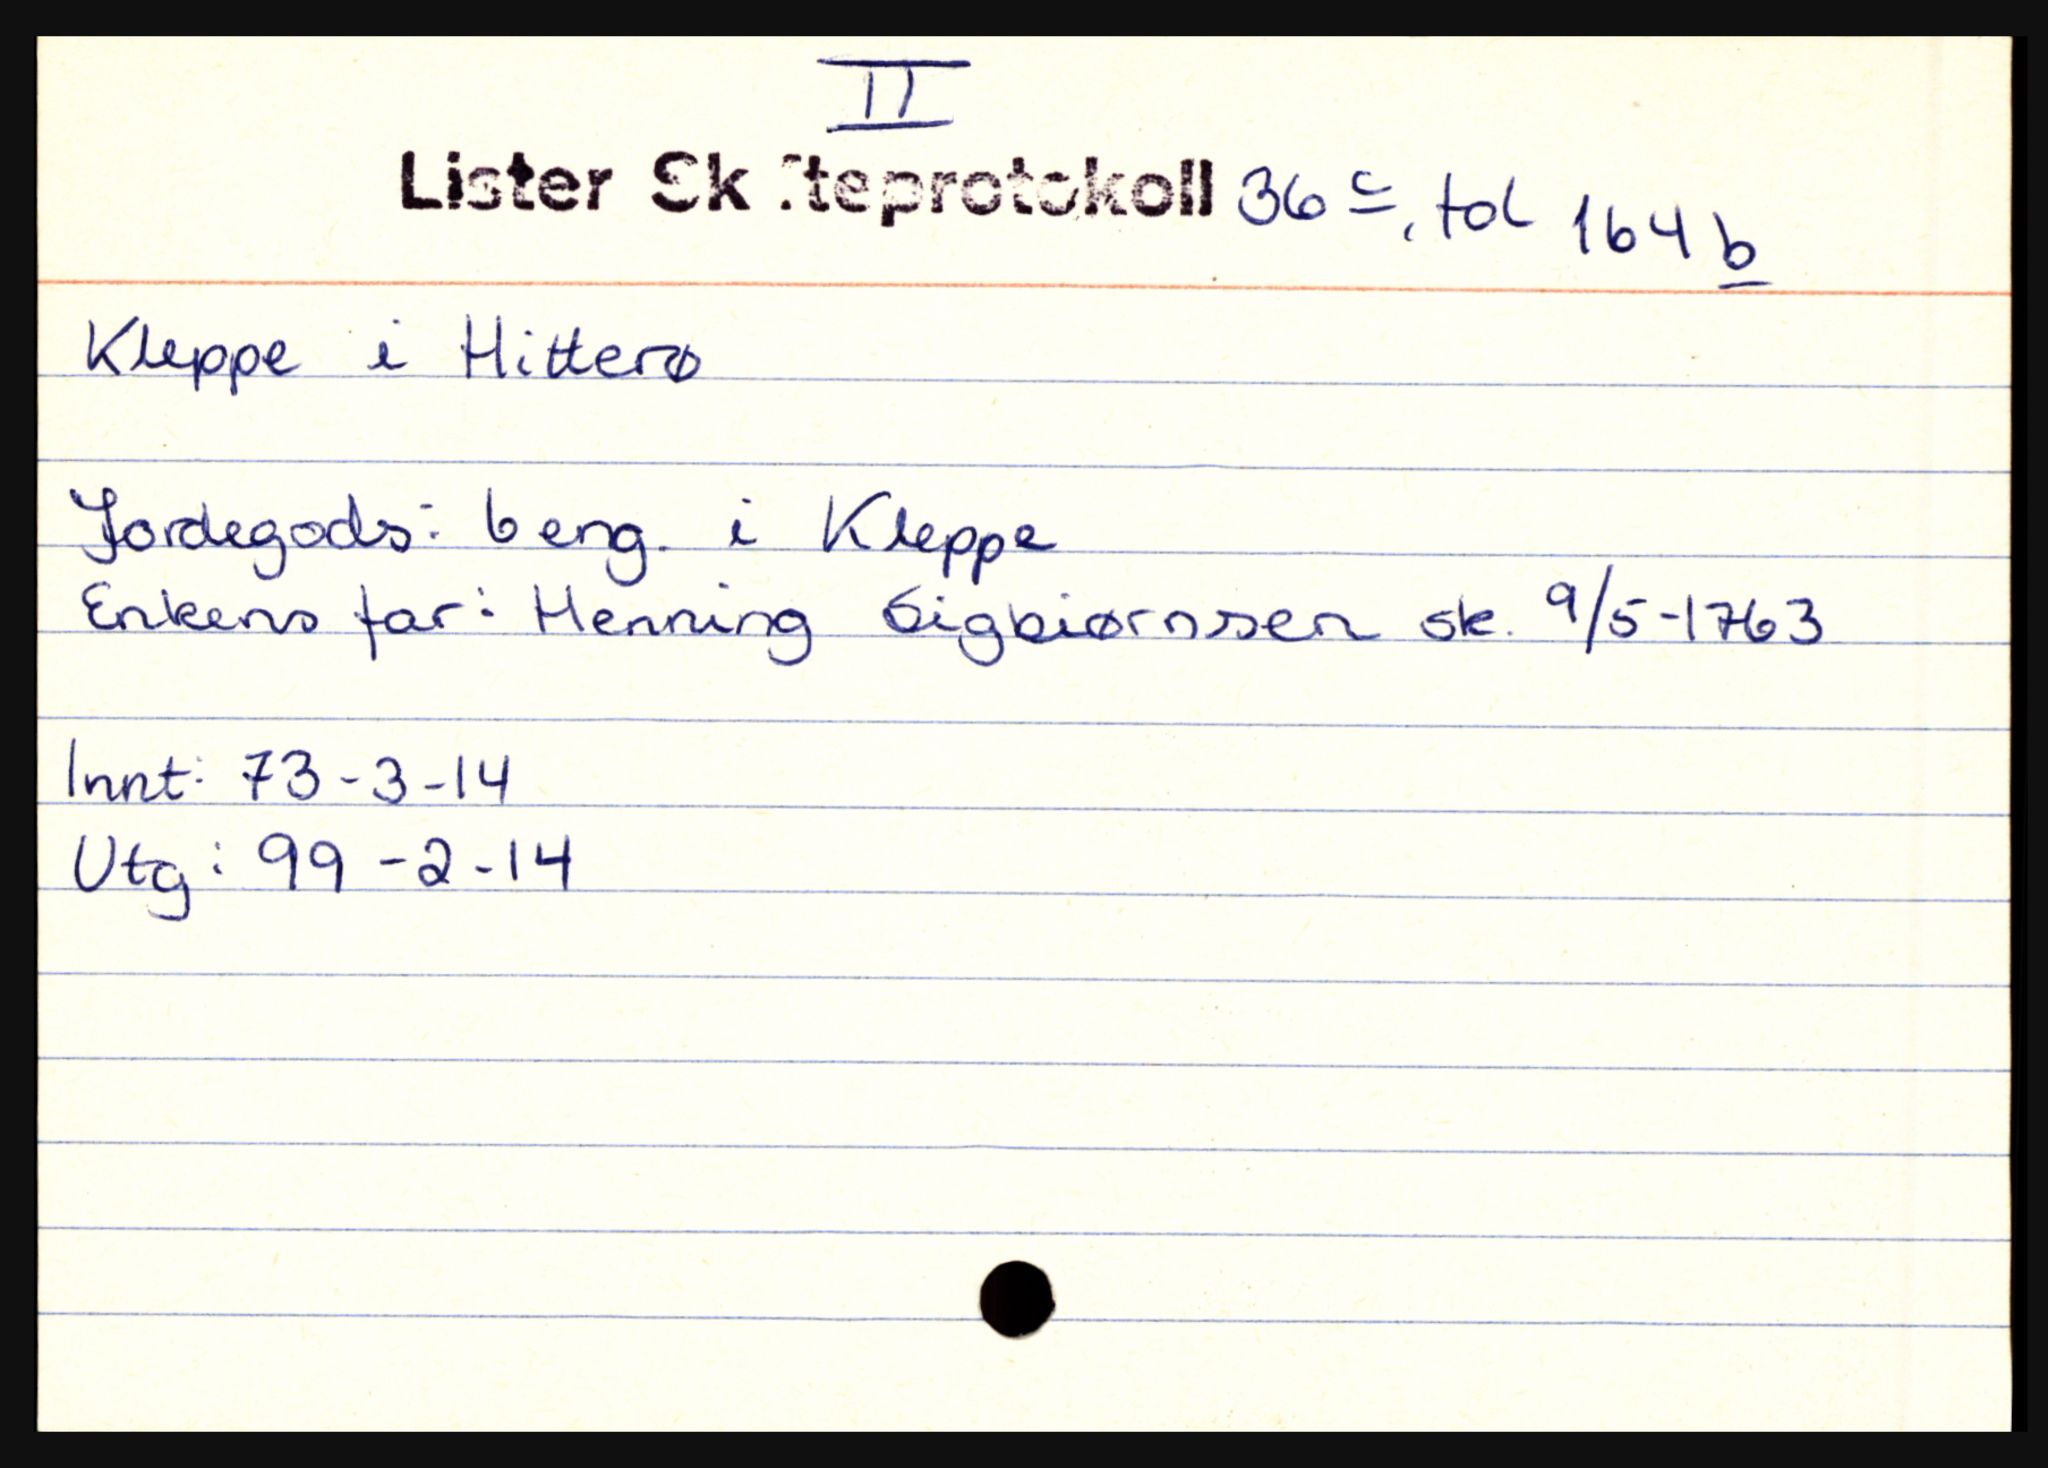 II
Lister Skifteprotokoll 36 c, fol 164 b
Kleppe i Hitterø
Jordegods: 6 eng. i Kleppe
Enkens far: Henning Sigbiørnssen sk. 9/5-1763
Innt: 73-3-14
Utg: 99-2-14